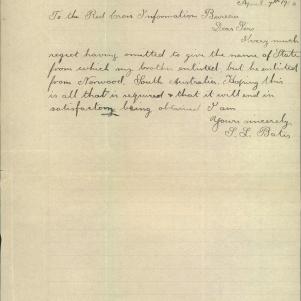 April 7th 191
To the Red Cross Information Bureau
Dear Sirs
I very much
regret having omitted to give the name of State
from which my brother enlisted, but he enlisted
from Norwood, South Australia. Hoping this
is all that is required & that it will end in
satisfactory being obtained I am
Yours sincerely,
S. L. Bates